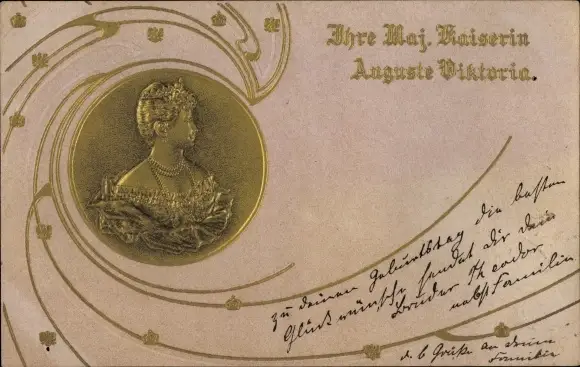 Ihre Maj. Kaiserin
Auguste Viktoria.
zu deinem Geburtstag die besten
Glückwünsche sendet dir dein
Bruder Theodor
nebst Familie
d. b Grüße an deine
Familie